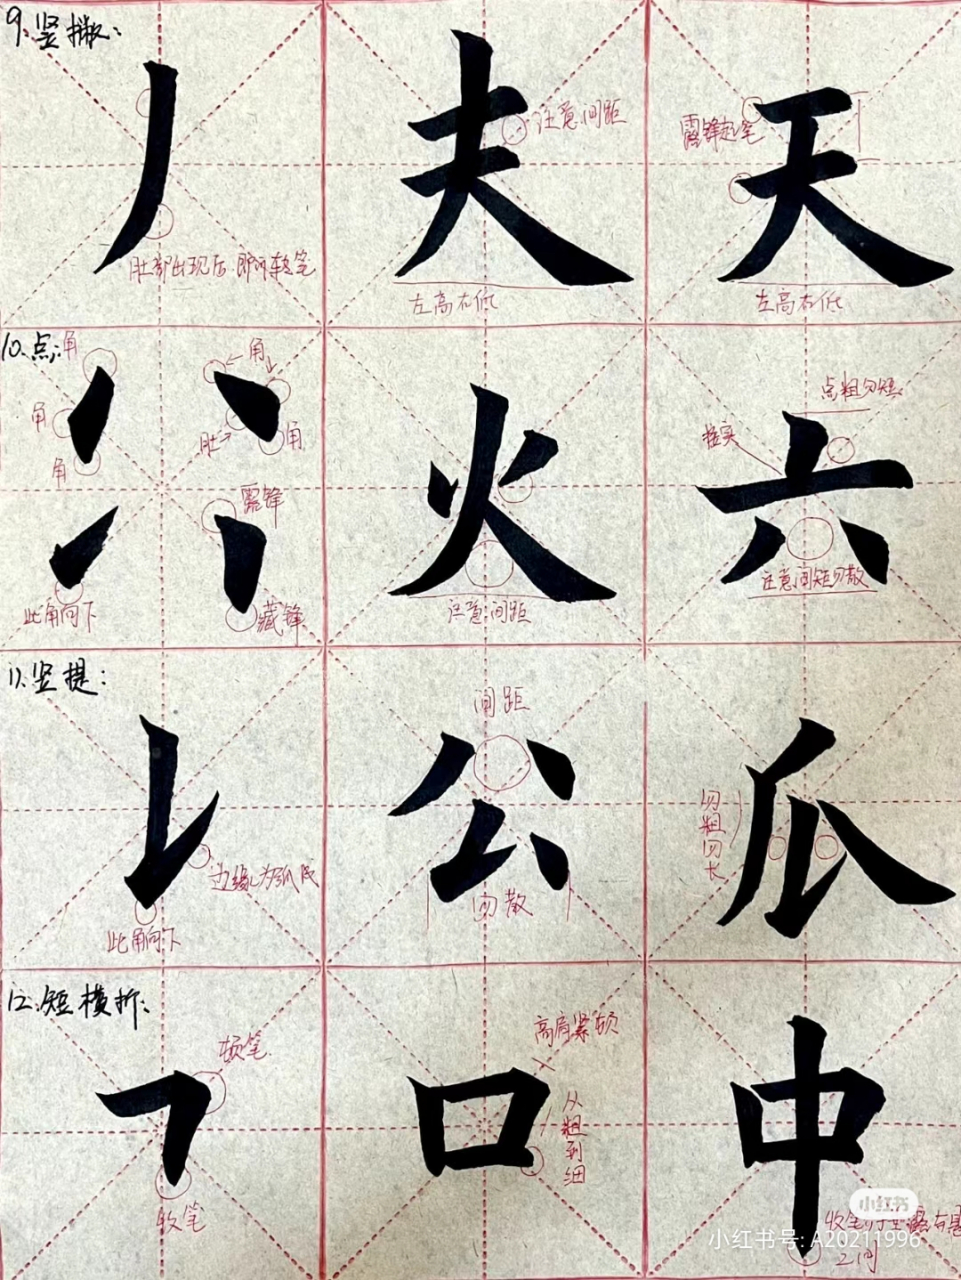 9.竖撇:
丿 夫 天
注意间距
露锋起笔
肚部出现后即可转笔
左高右低
左高右低
10.点:
角
角
角
角
肚
角
露锋
此角向下
藏锋
火
注意间距
六
点粗勿短
注意间距勿散
11.竖提:
边缘为弧度
此角向下
公
间距
勿散
瓜
勿粗勿长
12.短横折:
顿笔
收笔
口
高肩紧顿
从粗到细
中
小红书
小红书号: A20211996
之间